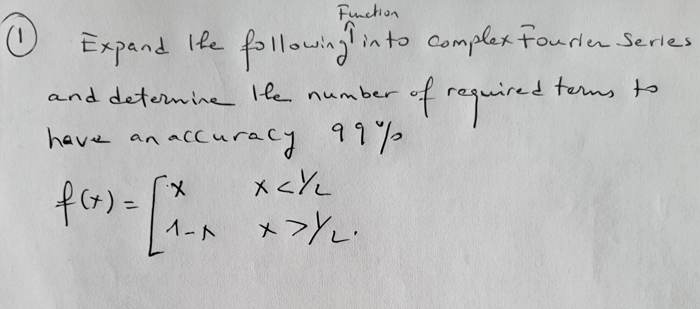 Function
① Expand the following ^ into complex Fourier Series
and determine the number of required terms to
have an accuracy 99%
f(x) = [ x x < 1/2
1-x x > 1/2.